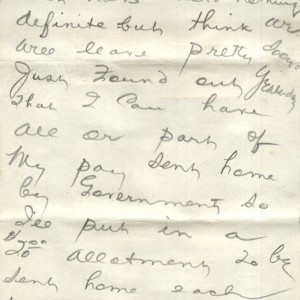 definite but think we
will leave pretty soon
Just Found out Yesterday
that I Can have
all or part of
My pay sent home
by Government so
I'll put in a
$20.00 allotment to be
sent home each